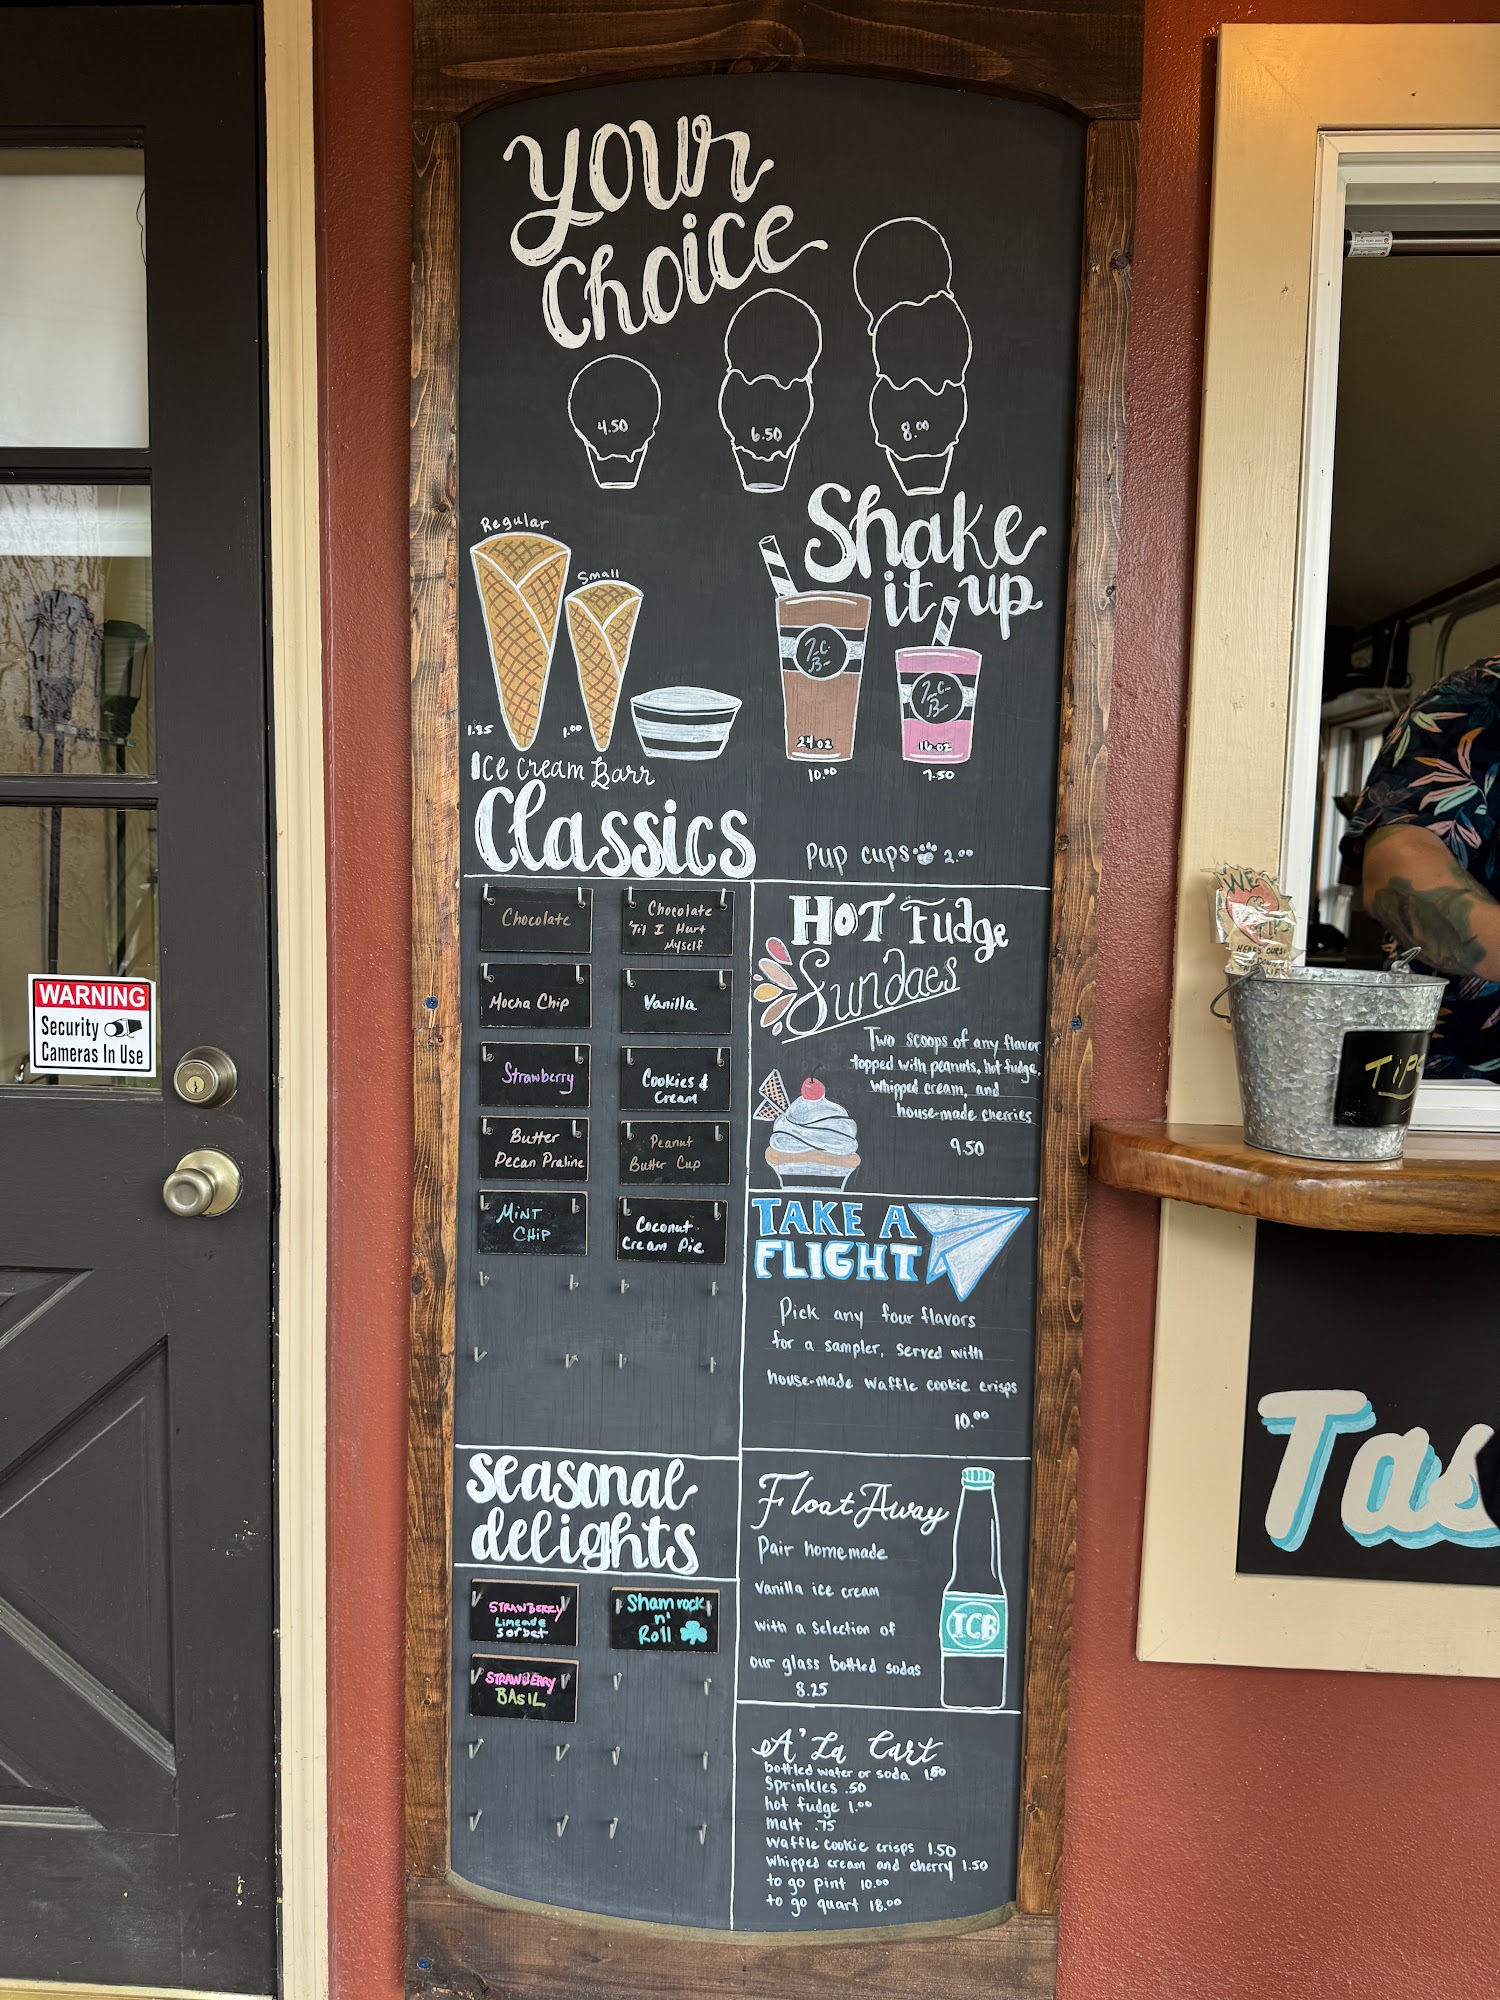 Your
Choice
4.50
6.50
8.00
Regular
Small
1.85
1.00
Shake
it up
I.C.
B
I.C.
B
24 oz
16 oz
10.00
7.50
Ice Cream Barr
Classics
Pup cups 2.00
Chocolate
Chocolate
'Til I Hurt
Myself
Mocha Chip
Vanilla
Strawberry
Cookies &
Cream
Butter
Pecan Praline
Peanut
Butter Cup
Mint
Chip
Coconut
Cream Pie
Hot Fudge
Sundaes
Two scoops of any flavor
topped with peanuts, hot fudge,
whipped cream, and
house-made cherries
9.50
TAKE A
FLIGHT
Pick any four flavors
for a sampler, served with
house-made waffle cookie crisps
10.00
Seasonal
delights
STRAWBERRY
Limeade
Sorbet
Shamrock
n'
Roll
STRAWBERRY
BASIL
Float Away
Pair homemade
vanilla ice cream
with a selection of
our glass bottled sodas
8.25
ICB
A' La Cart
bottled water or soda 1.50
Sprinkles .50
hot fudge 1.00
Malt .75
waffle cookie crisps 1.50
whipped cream and cherry 1.50
to go pint 10.00
to go quart 18.00
WARNING
Security
Cameras In Use
WE
TIP
Tips
Tas